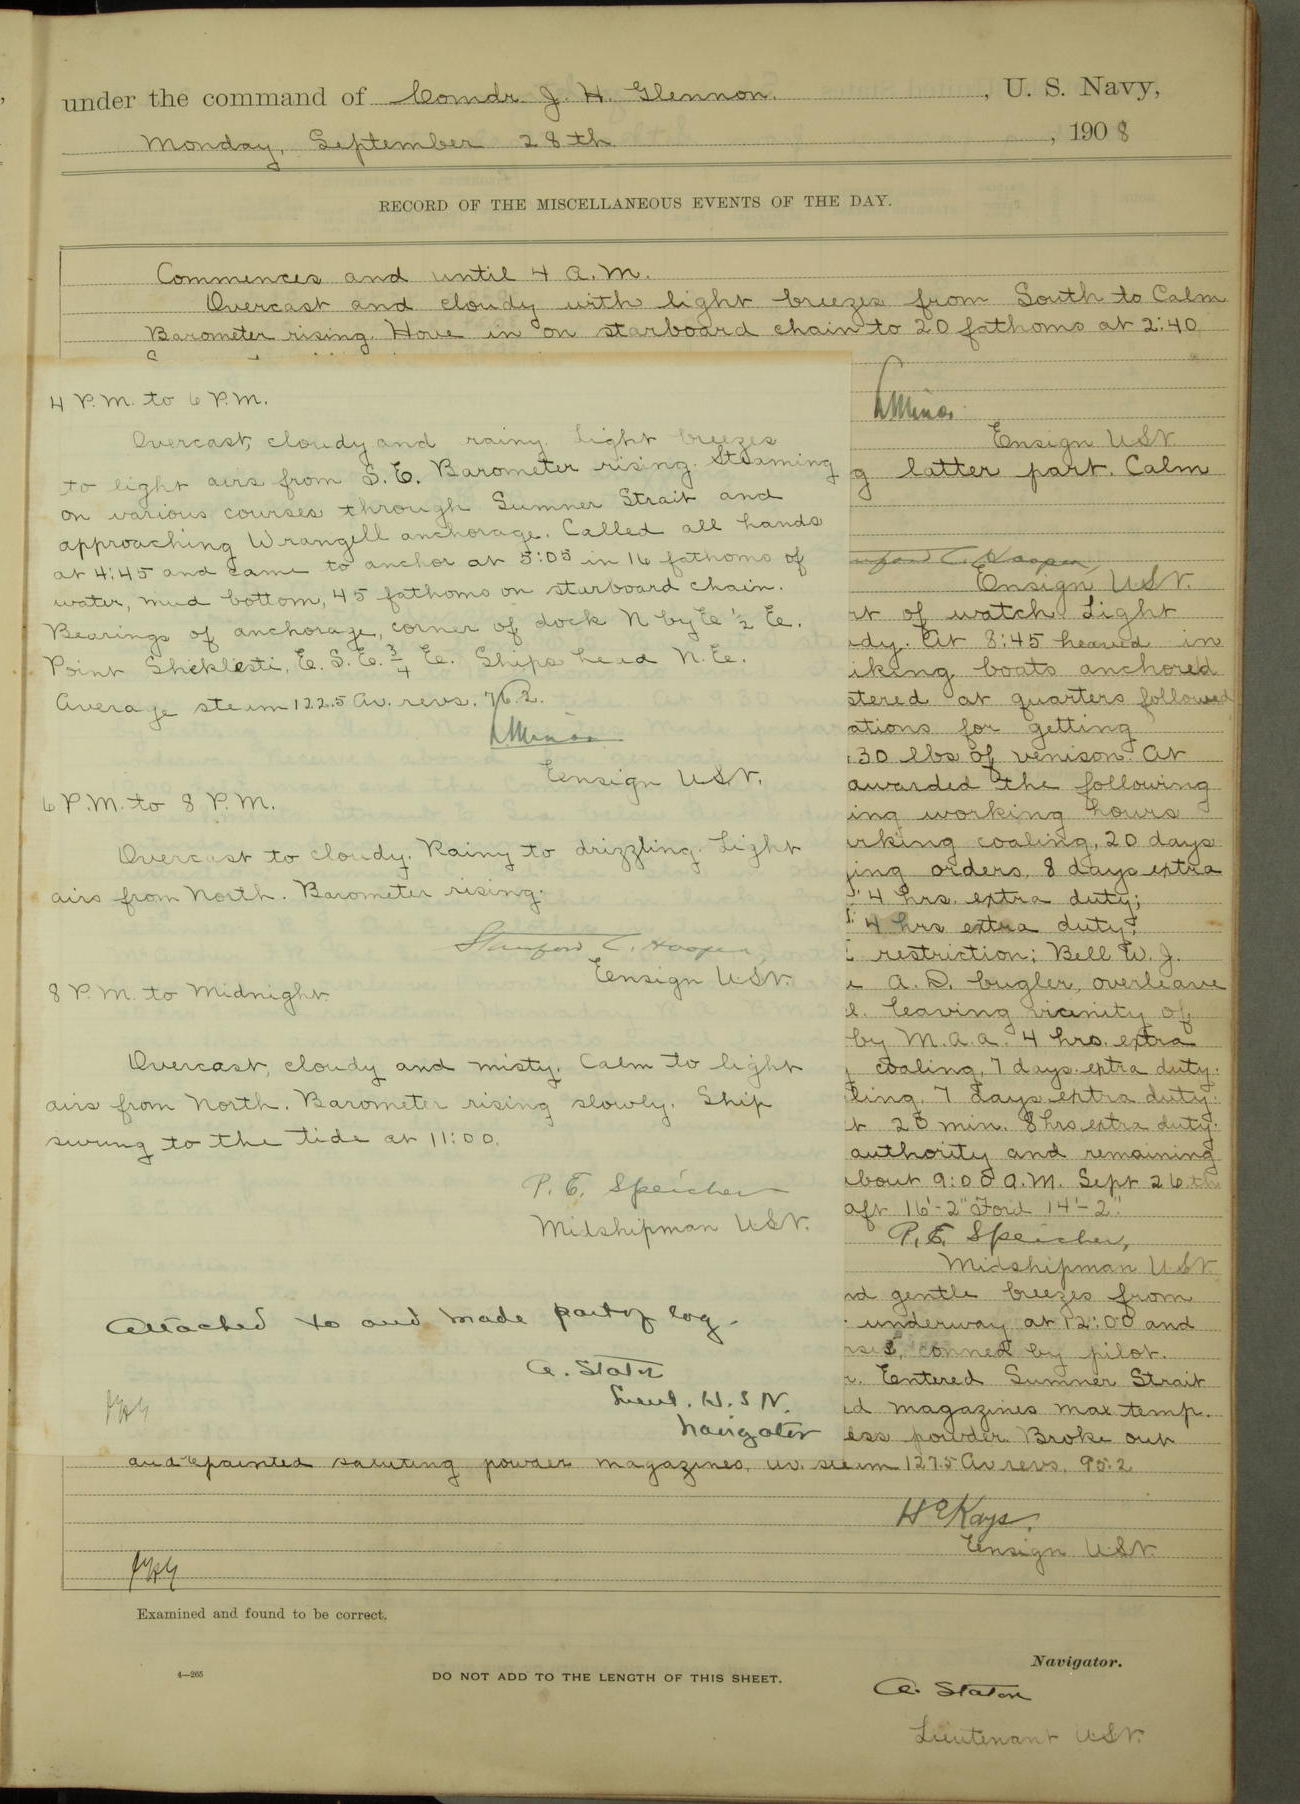 under the command of Comdr. J. H. Glennon, U. S. Navy,
Monday, September 28th, 1908
RECORD OF THE MISCELLANEOUS EVENTS OF THE DAY.
Commences and until 4 A.M.
Overcast and cloudy with light breezes from South to Calm
Barometer rising. Hove in on starboard chain to 20 fathoms at 2:40
4 P.M. to 6 P.M.
Overcast, cloudy and rainy. Light breezes
to light airs from S. E. Barometer rising. Steaming
on various courses through Sumner Strait and
approaching Wrangell anchorage. Called all hands
at 4:45 and came to anchor at 5:05 in 16 fathoms of
water, mud bottom, 45 fathoms on starboard chain.
Bearings of anchorage, corner of dock N by E ½ E.
Point Sheklesti, E. S. E. ¾ E. Ships head N. E.
Average steam 122.5 Av. revs. 76.2.
Minor
Ensign USN.
6 P.M. to 8 P.M.
Overcast to cloudy. Rainy to drizzling. Light
airs from North. Barometer rising.
Stanford C. Hooper,
Ensign U.S.N.
8 P.M. to Midnight
Overcast, cloudy and misty. Calm to light
airs from North. Barometer rising slowly. Ship
swung to the tide at 11:00.
P. E. Speicher
Midshipman USN.
Attached to and made part of log.
A. Staton
Lieut. U.S.N.
Navigator
Minor
Ensign USN
g latter part. Calm
C. Hooper
Ensign USN.
rt of watch. Light
udy. At 8:45 heaved in
iking boats anchored
stered at quarters followed
ations for getting
30 lbs of venison. At
awarded the following
ing working hours
rking coaling, 20 days
ying orders, 8 days extra
4 hrs. extra duty;
4 hrs extra duty;
restriction; Bell W. J.
A. D. bugler, overleave
e. leaving vicinity of
by M.A.A. 4 hrs. extra
coaling, 7 days extra duty.
ling, 7 days extra duty.
t 20 min. 8 hrs extra duty.
authority and remaining
bout 9:00 A.M. Sept 26th
aft 16'-2" Ford 14'-2".
P. E. Speicher,
Midshipman USN
nd gentle breezes from
underway at 12:00 and
conned by pilot.
r. Entered Sumner Strait
d magazines max temp.
ess powder. Broke out
and repainted saluting powder magazines. Av. steam 127.5 Av revs. 95.2
H E Kays.
Ensign USN.
JHG
Examined and found to be correct.
4—265
DO NOT ADD TO THE LENGTH OF THIS SHEET.
Navigator.
A. Staton
Lieutenant USN.